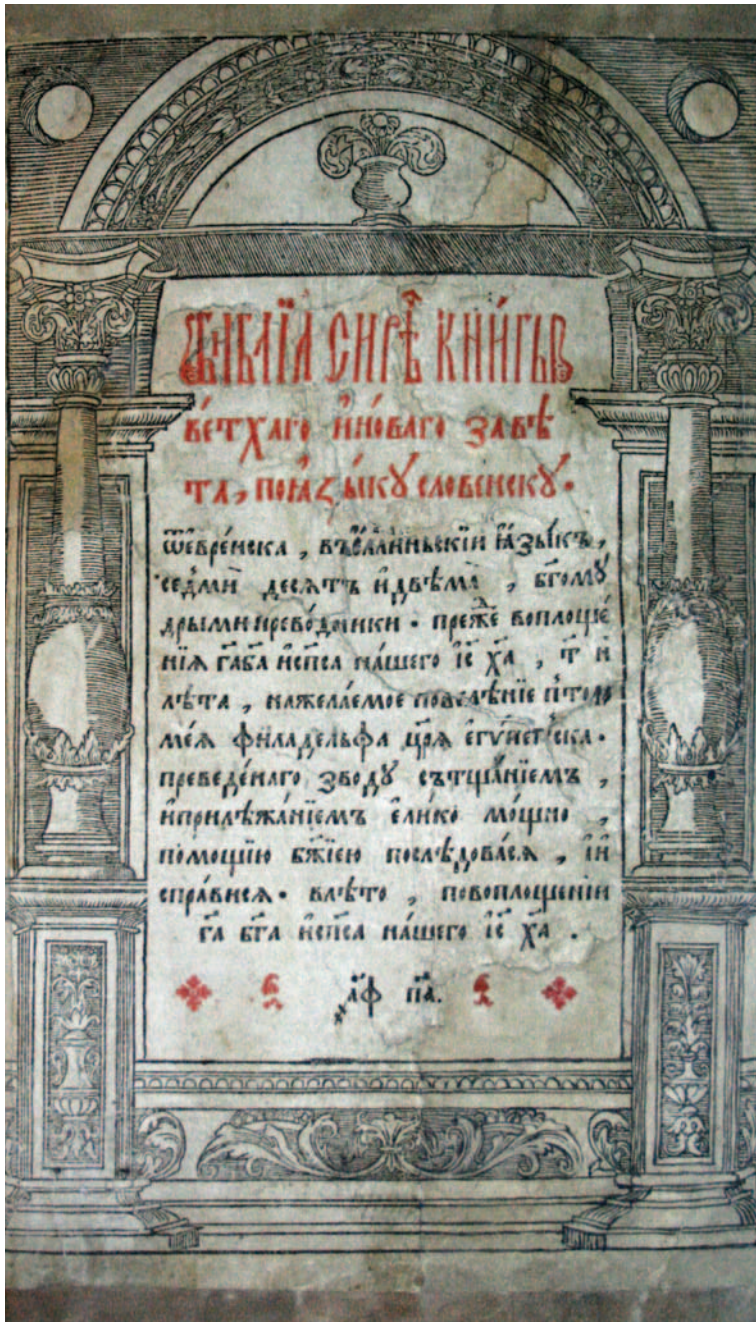 БИБЛЇА СИРѢ͛Ч КНИ́ГЫ
ве́тхаго и҆но́ваго завѣ
та, поꙗ҆зы́кꙋ словенскꙋ.
ѿевре́иска, въе҆́ллиньскїи ꙗ҆зы́къ,
седмїи десятъ и҆двѣма̀, бг҃омꙋ́
дрыми преводники. преж҃е воплоще́
нїѧ га҃ бга҃ и҆сп҃са на́шего і҆с҃ х҃а, т҃ и҆
лѣта, нажела́емое повелѣ́нїе птоло
ме́ѧ филаде́льфа цр҃ѧ е҆гѵ́петска.
преведе́наго зводꙋ сътща́нїемъ,
и҆прилѣжа́нїемъ е҆ли́ко мо́щно,
помощїю бж҃їею послѣ́довасѧ, і҆и
спра́висѧ. влѣ́то, повоплоще́нїи
га҃ бга҃ и҆сп҃са на́шего і҆с҃ х҃а.
҂а҃ф п҃а.